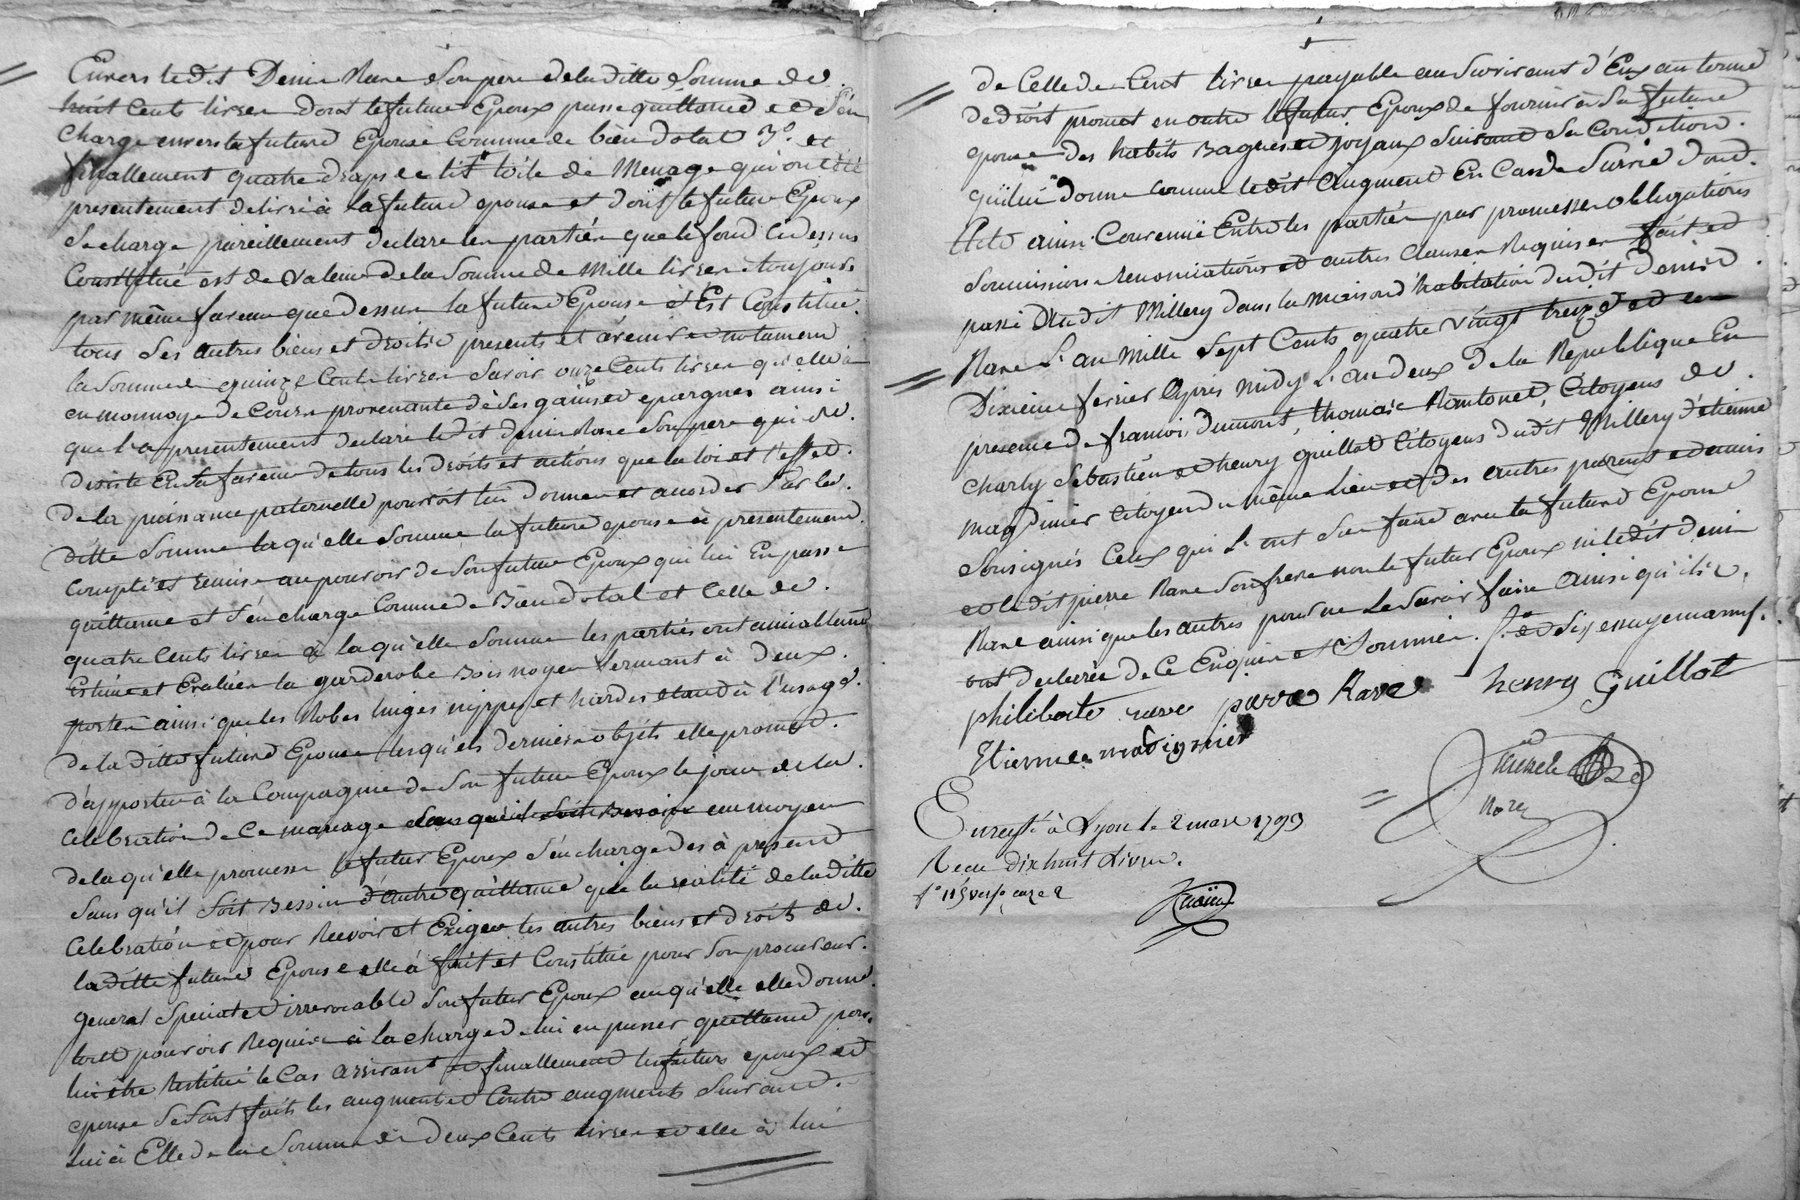 Envers ledit Denis Rave son pere de la ditte somme de
huit cents livres dont le futur Epoux passe quittance et s'en
charge envers la future Epouse comme de bien dotal 3.º et
finallement quatre draps de lit toile de menage qui ont été
presentement delivré à la future epouse et dont le futur Epoux
se charge pareillement declare les parties que le fond cy dessus
Constitué est de valeur de la somme de Mille livres toujours
par même faveur que dessus la future Epouse s'Est Constitué
tous ses autres biens et droits presents et avenir et notament
la somme de quinze Cents livres savoir onze Cents livres qu'elle a
en monnoye de Cours provenante de ses gains et epargnes ainsi
que l'a presentement declaré ledit denis Rave son pere qui se
desiste En sa faveur de tous les droits et actions que la loi et l'effet
de la puissance paternelle pourroit lui donner et accorder sur les
dittes Somme la qu'elle somme la future epouse a presentement
compté et remise au pouvoir de son futur Epoux qui lui En passe
quittance et s'en charge Comme de Bien dotal et Celle de
quatre Cents livres à la qu'elle somme les parties ont amiablement
Estimé et Evaluée la garderobe Bois noyer fermant à deux
portes ainsi que les Robes linges nippes et hardes etand à l'usage
de la ditte future Epouse lesqu'els derniers objets elle promet
d'apporter à la Compagnie de son futur Epoux le jour de la
Celebration de Ce mariage sans qu'il soit Besoin au moyen
de la qu'elle promesse le futur Epoux s'en charge des à present
sans qu'il soit Besoin d'autre quittance que la realité de la ditte
Celebration et pour Recevoir et Exiger les autres biens et droits de
la ditte future Epouse elle à fait et Constitué pour son procureur
general special et irrevocable son futur Epoux au qu'elle elle donne
tout pouvoir Requis à la charge de lui en passer quittance pour
lui être Restitué le Cas arrivant et finallement les futurs epoux et
epouse se sont faits les augment et Contre augments suivant
lui à Elle de la somme de deux Cents livres et elle à lui
de Celle de Cent livres payable au survivant d'Eux au terme
de droit promet en outre le futur Epoux de fournir à sa future
epouse des habits Bagues et joyaux suivant sa Condition
qu'il lui donne comme ledit augment En Cas de survie dont
Acte ainsi Convenu Entre les parties par promesses obligations
soumissions renonciations et autres Clauses Requises fait et
passé Audit Millery dans la maison d'habitation dudit denis
Rave L'an Mille Sept Cents quatre vingt treize et le
Dixieme fevrier Après Midy L'an deux de la Republique En
presence de francois Dumont, thomas Rantonet, Citoyens de
Charly Sebastien et henry Guillot Citoyens dudit Millery d'etienne
magdinier Citoyen du même lieu et des autres parents et amis
soussignés Ceux qui l'ont sçu faire avec la future Epouse
et ledit pierre Rave son frere non le futur Epoux ni ledit denis
Rave ainsi que les autres pour ne Le savoir faire ainsi qu'ils
ont declarés de Ce Enquis et Sommés.
philiberte rave pierre Rave henry Guillot
Etienne madignier
Enregté à Lyon le 2 mars 1793
Reçu dix huit Livres.
fº 115 verso case 2